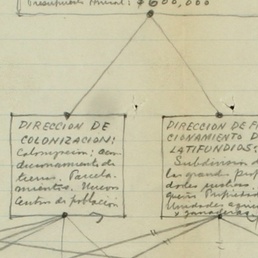 Presupuesto Anual: $600,000
DIRECCION DE
COLONIZACION:
Colonizacion; acon
dicionamiento de
tierras. Parcela-
mientos. Nuevos
Centros de población
DIRECCION DE F
CIONAMIENTO D
LATIFUNDIOS:
Subdivision d
la grand prop
dades rusticas.
queña Propiedad
Unidades agric
y ganaderas